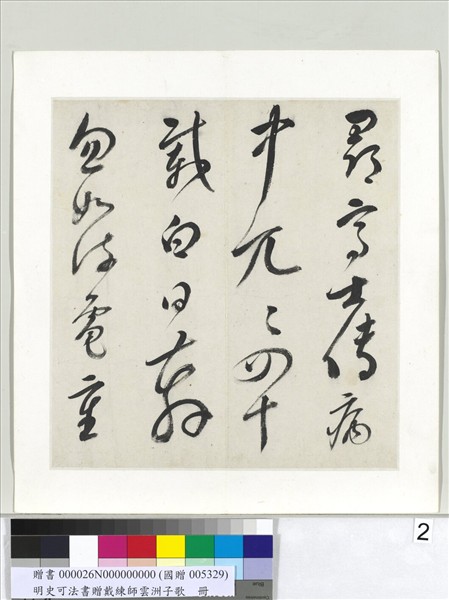 尋高士傳病
中兀〻四十
載白日奔
忽如流電重
2
贈書 000026N000000000 (國贈 005329)
明史可法書贈戴練師雲洲子歌 冊